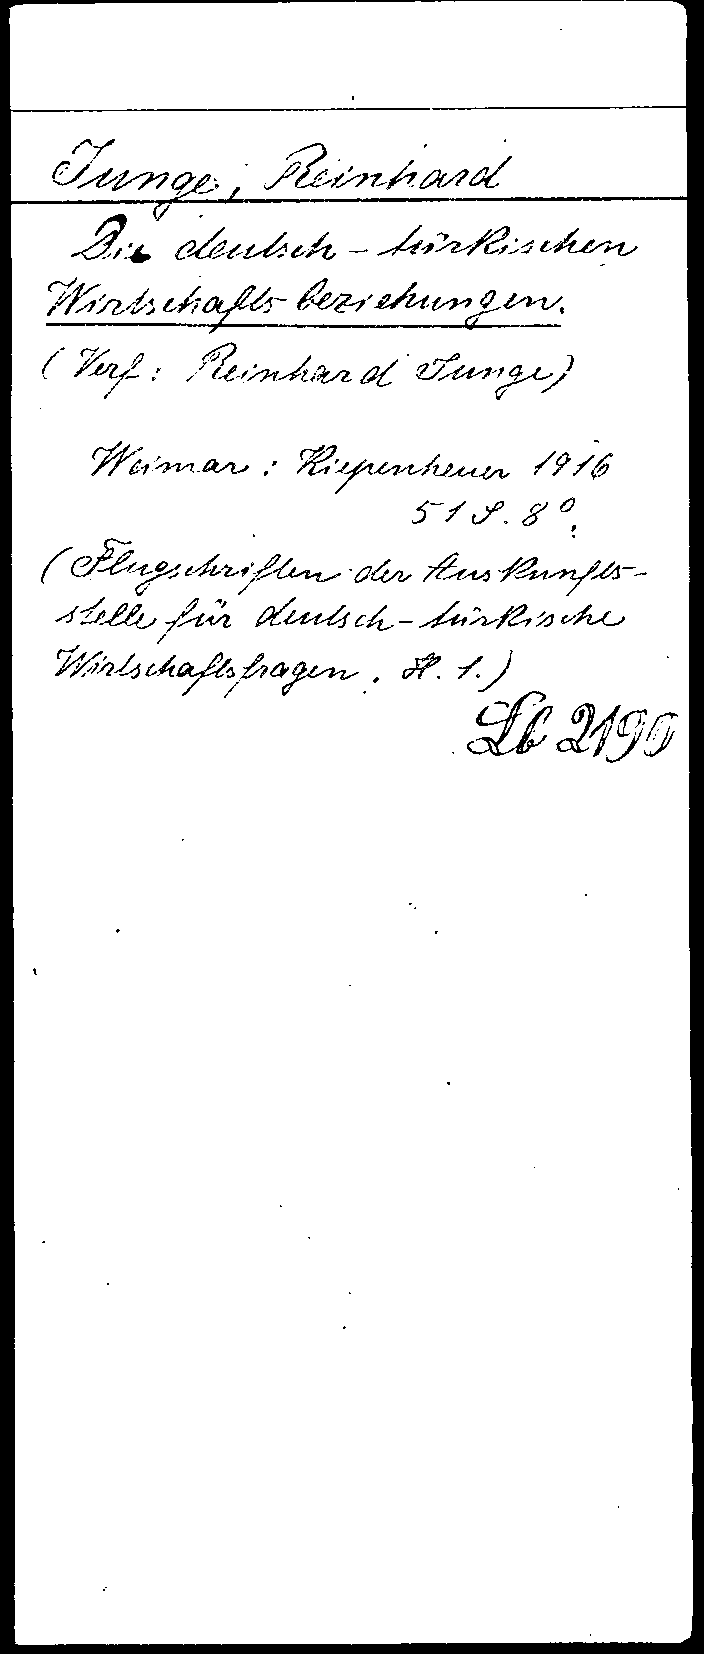 Junge, Reinhard
Die deutsch-türkischen
Wirtschaftsbeziehungen.
(Verf: Reinhard Junge)
Weimar: Kiepenheuer 1916
51 S. 8°.
(Flugschriften der Auskunfts-
stelle für deutsch-türkische
Wirtschaftsfragen. H. 1.)
Lb 2190